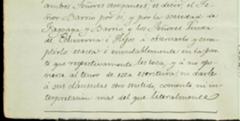 ambos Señores comparecientes es decir, el Se
ñor Barrio por sí, y por la sociedad de
Barrio y los Señores Viuda
de é Hijos á observarlo y cum
plirlo exacta é inviolablemente en la par
te que respectivamente les toca, y á no opo
nerse al tenor de esta escritura ni darle
á sus cláusulas otro sentido comento ni in
terpretación mas del que literalmente